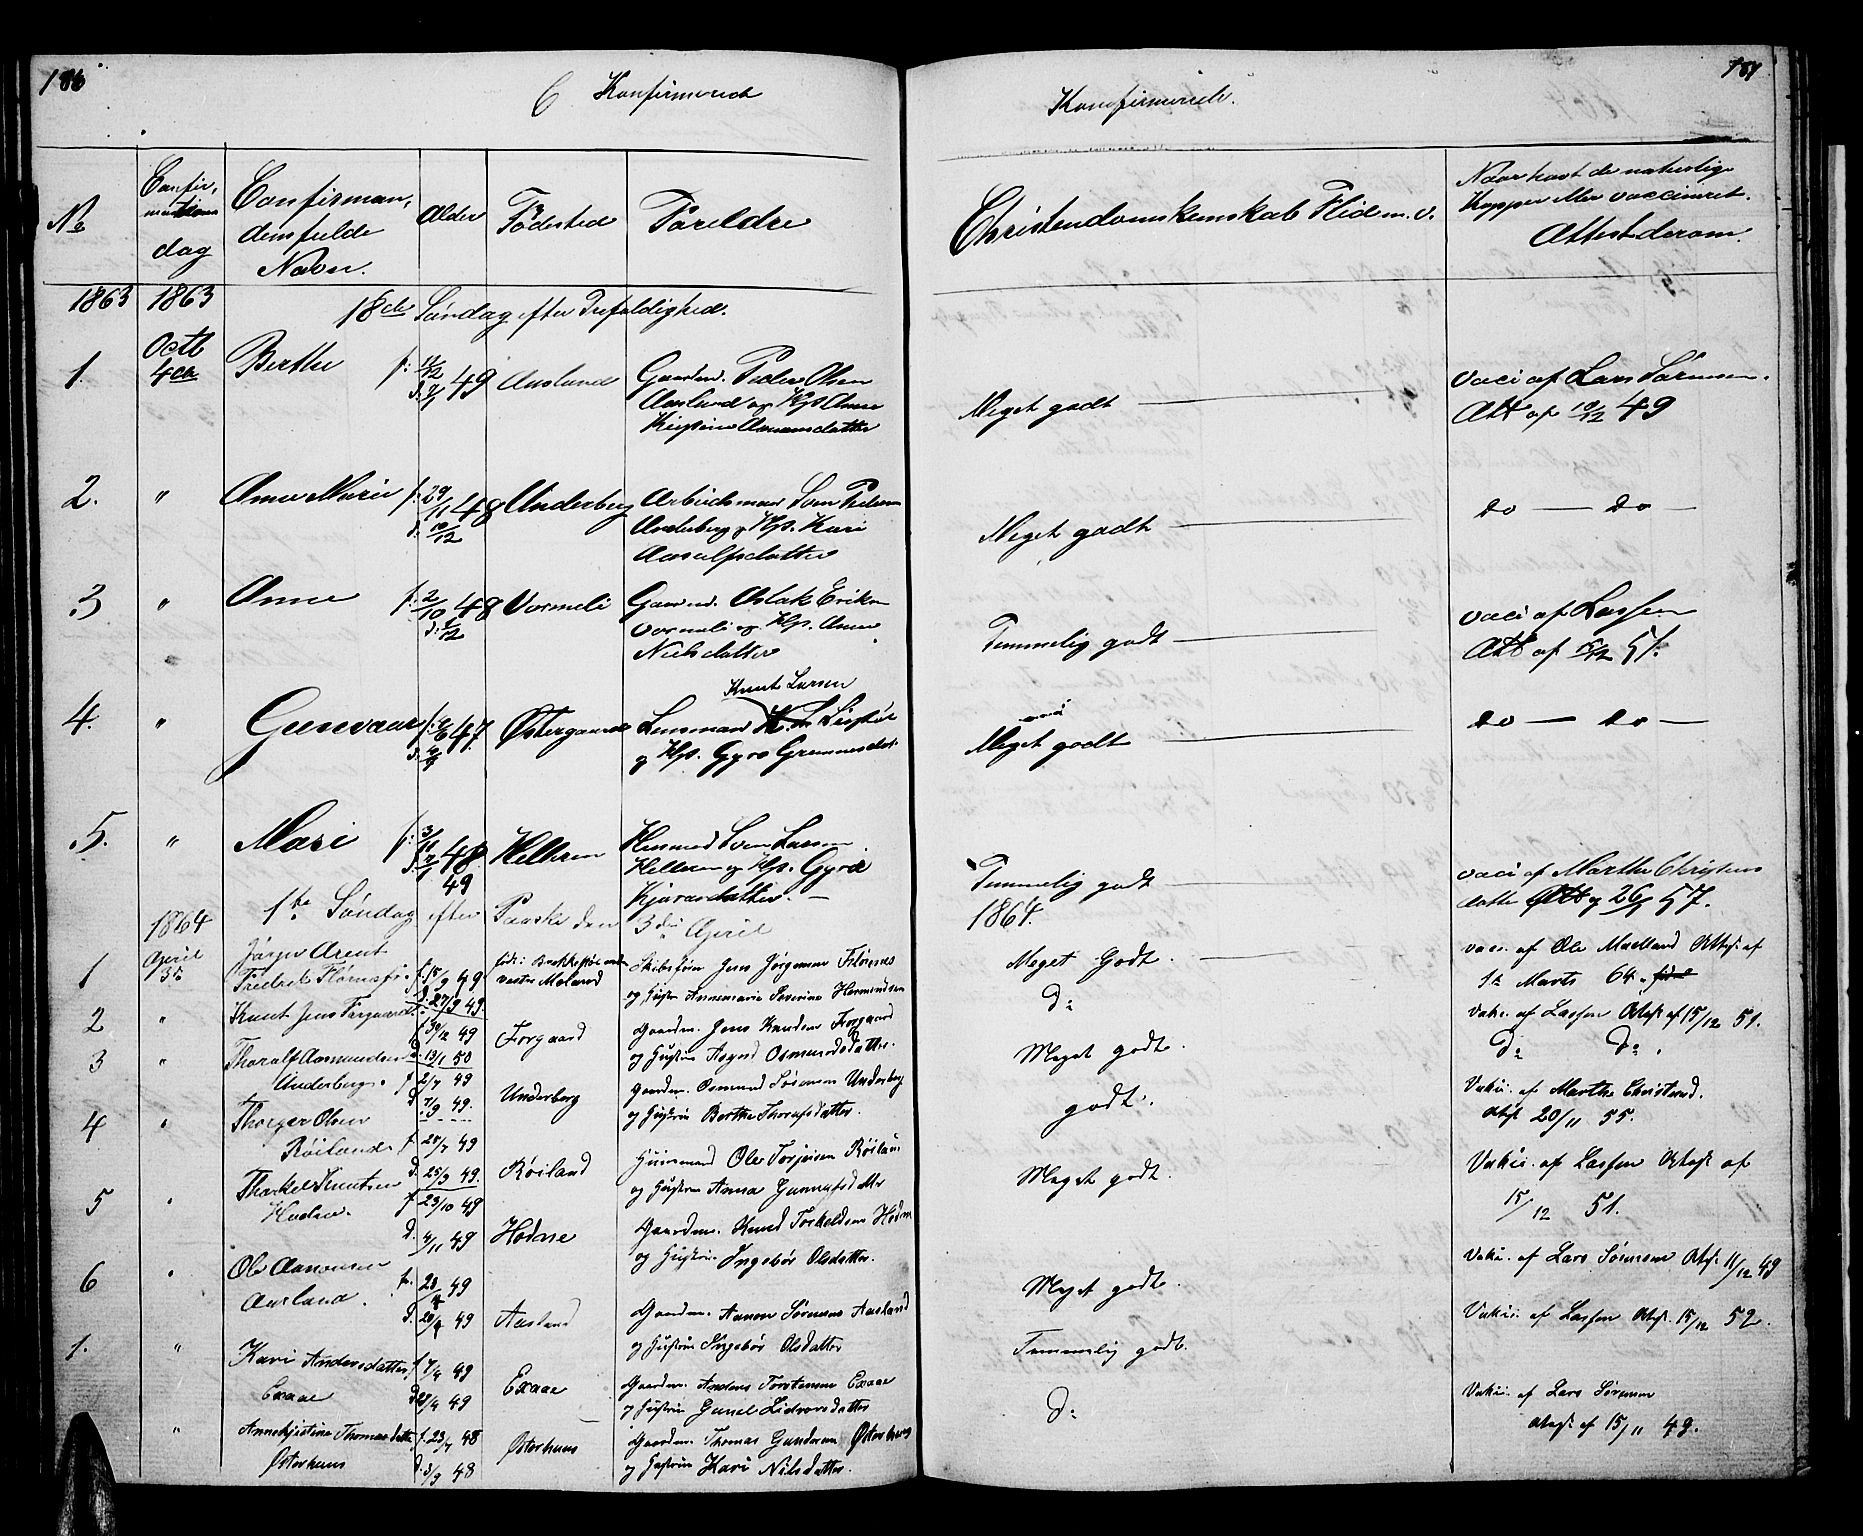 186
C Konfirmerede
No
Confirmations
dag
Confirman,
dens fulde
Navn.
Alder
Fødested
Forældre
1863 1863
18de Søndag efter Trefoldighed.
1. Octb 4de Berthe f: 11/12 49 Aasland Gaardm. Peder Olsen
Aasland og Hst. Anne
Kirstine Aanonsdatter
2. " Anne Marie f: 29/11 48 Underberg Arbeidsmand Sven Pedersen
d. 10/12 Underberg og Hst. Kari
Aasulfsdatter
3 " Anne f: 2/10 48 Vormeli Gaardm. Aslak Eriksen
Vormeli og Hst. Anne
Nielsdatter
Knut Larsen
4. " Gunvaar 47 Østergaard Lensmand
og Hst. Gyro
5. " Mari f: 48 Hellersen Husmd Sven Larsen
49 Hellersen og Hst. Gyro
1864 1te Søndag efter Paaske den 3die April
1 April 3de Jørgen Arent
Fredrik f. 15/9 49
d. 27/9 49. vestre Moland Skibsfører Jens Jørgensen
og Hustru Annemarie Severine Hermundsen
2 " Knut Jens Forgaard f. 30/12 49 Forgaard Gaardm. Jens Knudsen Forgaard
d. 13/1 50 og Hustru Asgerd Osmundsdatter.
3 " Tharalf Aasmundsen
Underberg. f 2/7 49 Underberg Gaardm. Osmund Sørensen Underberg
d. 7/9 49. og Hustru Berthe Thorufsdatter.
4 " Thorger Olsen
Røiland f. 28/7 49 Røiland Huusmand Ole Torjeisen Røiland
d. 25/9 49. og Hustru Anna Gunnufsdatter
5 " Thorkel Knutsen
Hodne. f. 23/10 49 Hodne Gaardm. Knud Torkeldsen Hodne
d. 4/11 49 og Hustru Ingebør Olsdatter.
6 " Ole Aanonsen
Aasland. f. 20 49 Aasland Gaardm. Aanon Sørensen Aasland
d. 49 og Hustru Ingebør Olsdatter
1. " Kari Andersdatter
Exaae f 7/4 49 Exaae Gaardm. Anders Torstensen Exaae
d 49 og Hustru Gunel Lidvorsdatter
" Annekjistine Thomasdatter
Østerhuus f. 23/7 48 Østerhuus Gaardm. Thomas Gundersen Østerhuus
d. 3/9 48 og Hustru Kari Nilsdatter.
187
Konfirmerede.
Christendomskundskab Flid m. v.
Naar havt de naturlige
Kopper eller vaccineret.
Attest derom.
Meget godt — vacci af Lars Sørensen.
Att af 10/12 49
Meget godt — do — do —
Temmelig godt — vacci af Lassen
Att af 15/12 51.
Meget godt — do — do —
Temmelig godt — vacci af Marthe Christens
datter Att 26 57.
1864.
Meget Godt. — vacc. af Ole Attest af
1te Marts 64.
do Vakc. af Lassen Attest af 15/12 51.
Meget godt. do do.
godt. Vakci. af Marthe Christensd.
Attst 20/11 55.
Meget godt. Vakci. af Lassen Attest af
15/12 51.
Meget godt. Vakci. af Lars Sørensen Attst. 11/12 49
Temmelig godt. Vakci. af Lassen Attst. 15/12 52.
do Vakci. af Lars Sørensen
Attest af 15/11 49.